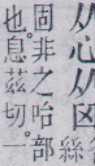 从心从囟絲
固非之咍部
也。息茲切。一